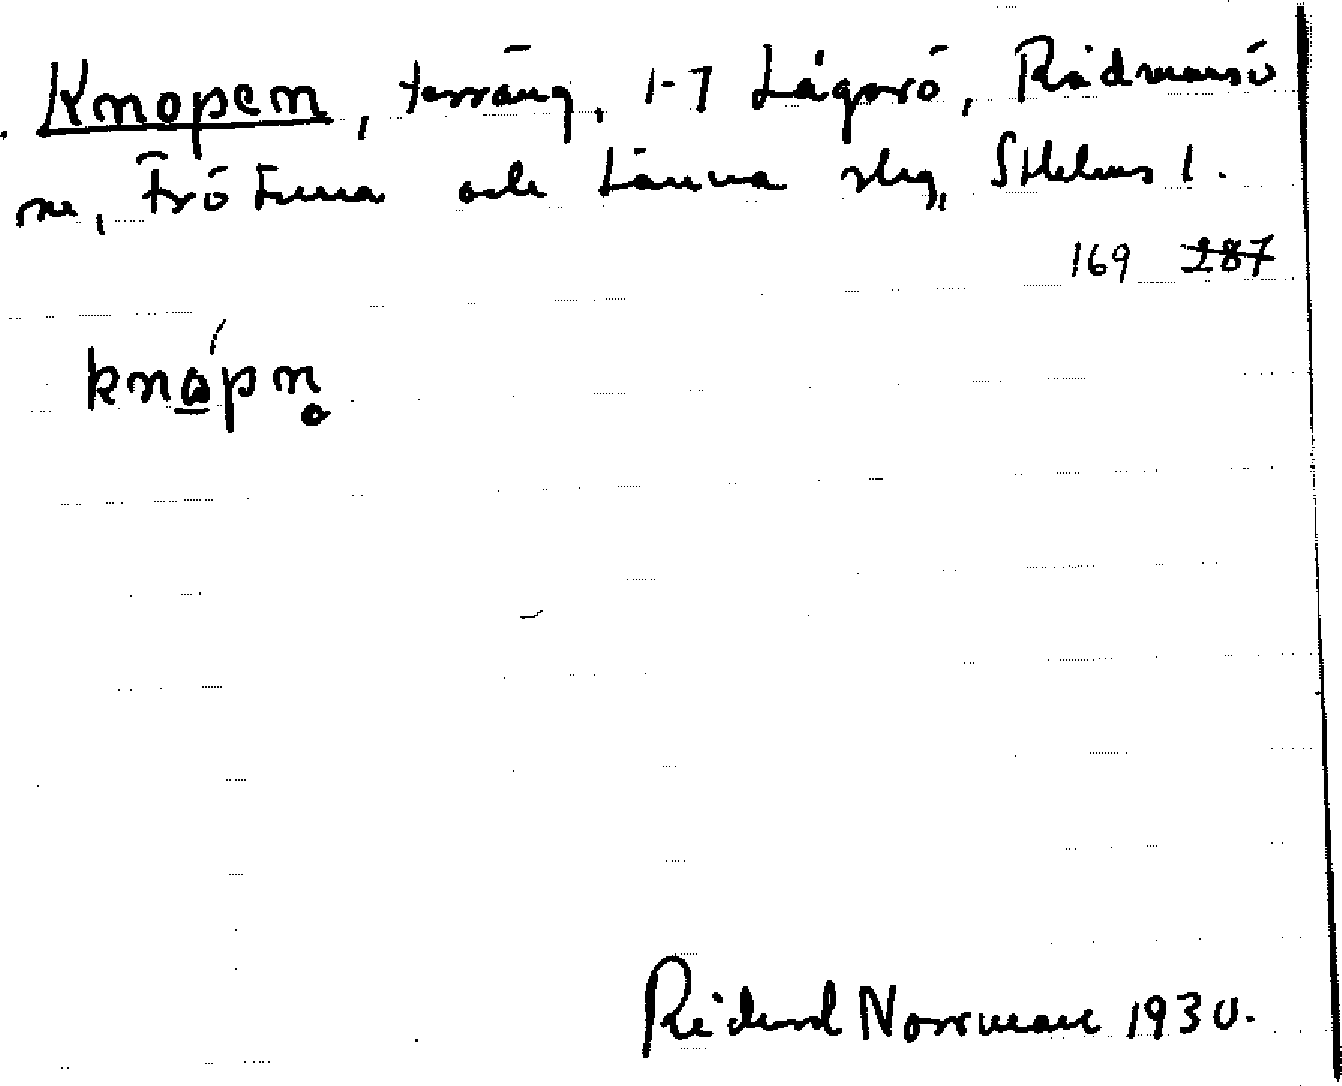 Knopen, terräng, 1-7 Lågarö, Rådmansö
sn, Frötuna och Länna skg, Sthlms l.
169 287
knåpn̥
Rickard Norrman 1930.